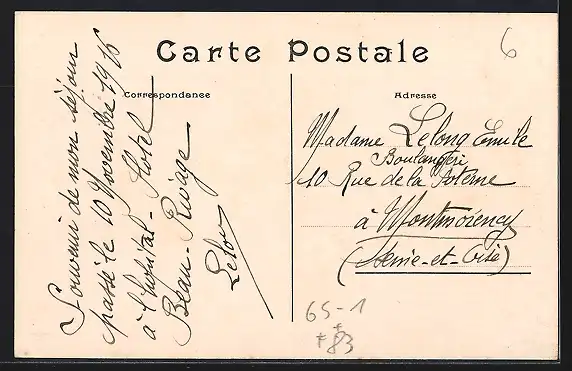 Carte Postale
6
Correspondance
Adresse
Souvenir de mon séjour
passé le 10 Novembre 1916
à l'hopital-Hotel
Beau-Rivage
Lelong
Madame Lelong Emile
Boulangeri
10 Rue de la Poterne
à Montmorency
(Seine-et-Oise)
65-1
+
+83